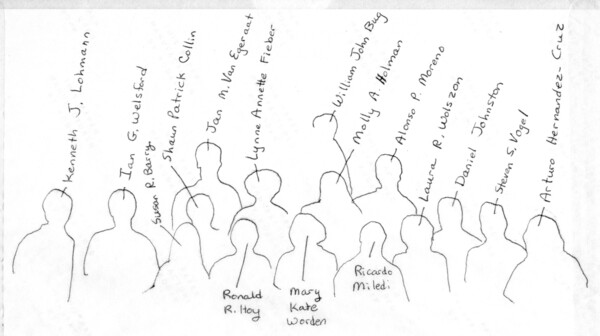 Kenneth J. Lohmann
Ian G. Welsford
Susan R. Barry
Shaun Patrick Collin
Jan M. Van Egeraat
Lynne Annette Fieber
William John Bug
Molly A. Holman
Alonso P. Moreno
Laura R. Wolszon
Daniel Johnston
Steven S. Vogel
Arturo Hernandez-Cruz
Ronald
R. Hoy
Mary
Kate
Worden
Ricardo
Miledi